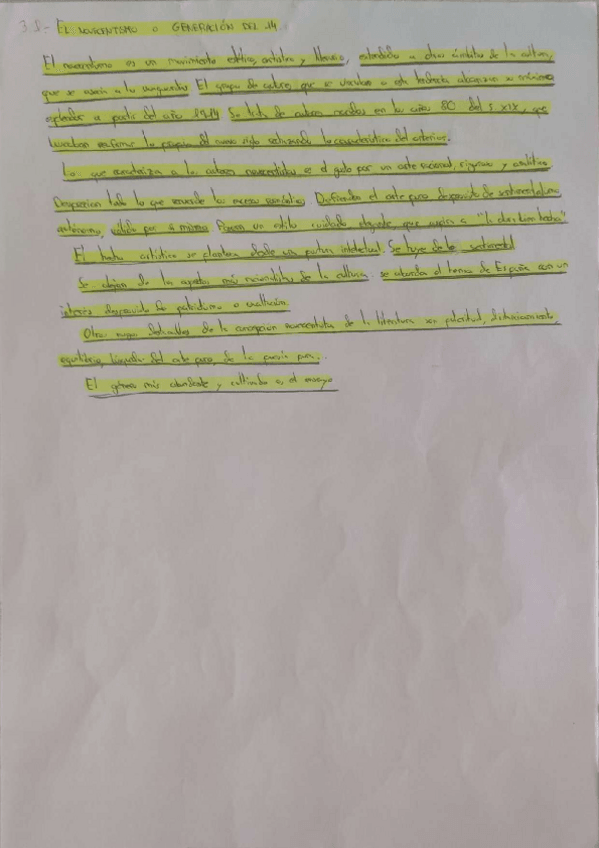 3.1- EL NOVECENTISMO O GENERACIÓN DEL 14.
El novecentismo es un movimiento estético, artístico y literario, extendido a otros ámbitos de la cultura,
que se asocia a las vanguardias. El grupo de autores que se vinculan a esta tendencia alcanzaron su
esplendor a partir del año 1914. Se trata de autores nacidos en los años 80 del s. XIX, que
del nuevo siglo rechazando las características del anterior.
Lo que caracteriza a los autores novecentistas es el gusto por un arte racional, riguroso y analítico.
Desprecian todo lo que recuerde los excesos románticos. Defienden el arte puro desprovisto de sentimentalismo,
autónomo, válido por sí mismo. Poseen un estilo cuidado, elegante, que aspira a "la obra bien hecha".
El hecho artístico se plantea desde una postura intelectual. Se huye de lo sentimental.
Se alejan de los aspectos más de la cultura: se aborda el tema de España con un
interés desprovisto de patriotismo o exaltación.
Otros rasgos destacables de la concepción novecentista de la literatura son pulcritud, distanciamiento,
equilibrio, búsqueda del arte puro, de la poesía pura.
El género más abundante y cultivado es el ensayo.